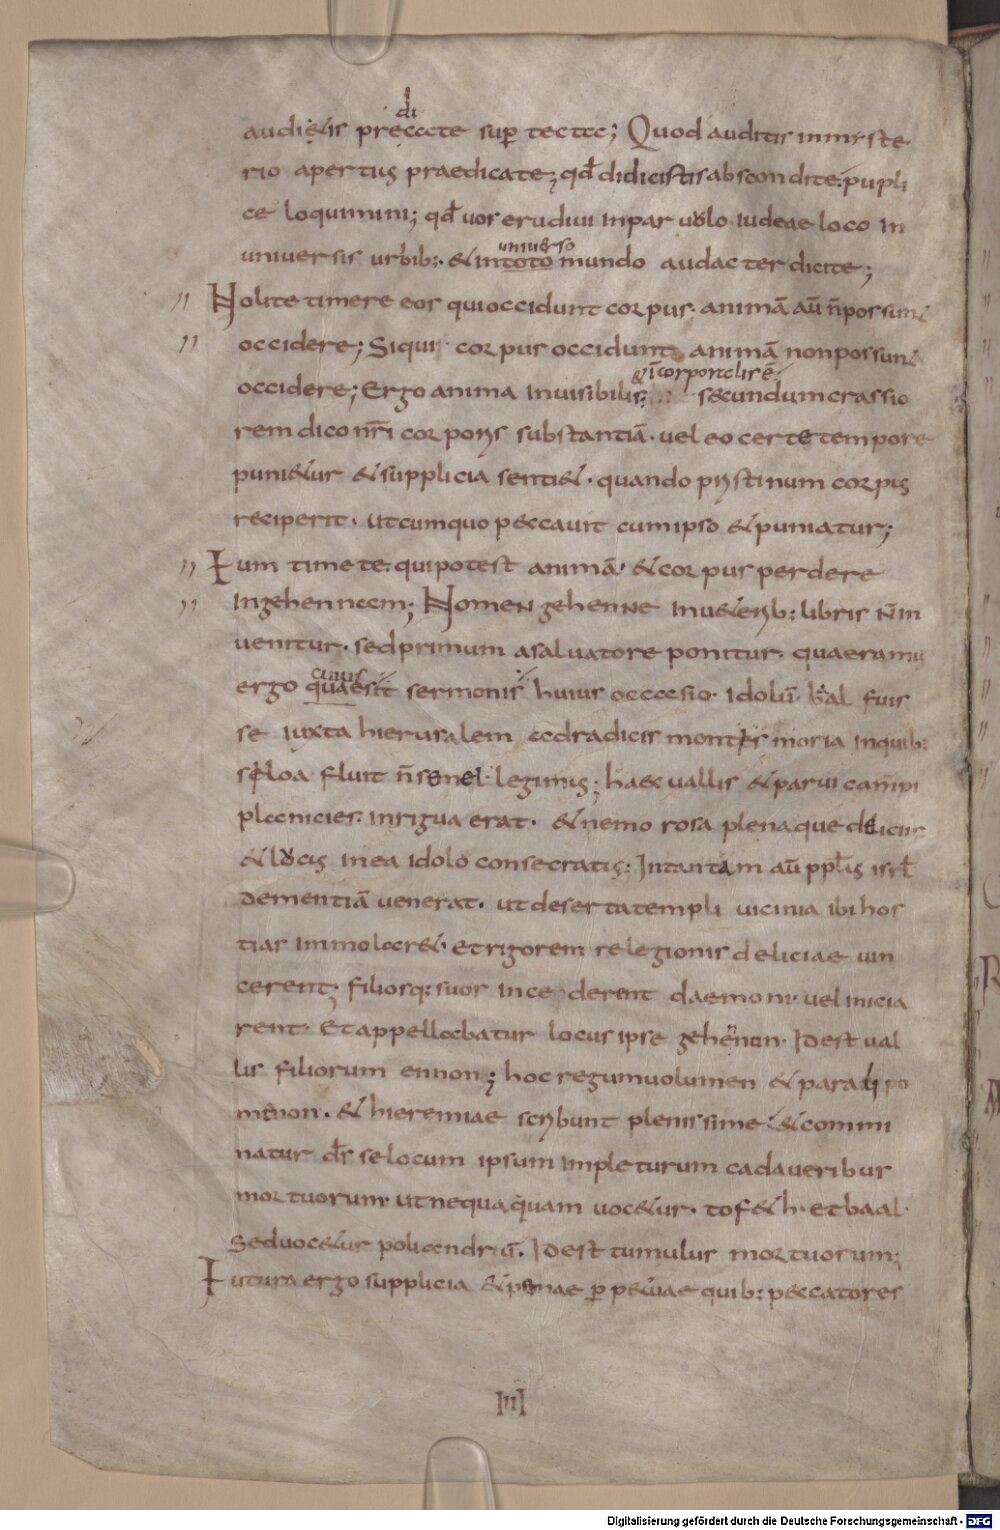 audi&is precate sup̄ tecta; Quod auditis in miste
di
rio apertius praedicate; qđ didicistis abscondite. pupli
ce loquimini; qđ uos erudiui in paruulo iudeae loco in
uniuersis urbib:· & in toto mundo audacter dicite;
uniuerso
Nolite timere eos qui occidunt corpus· animā aū n̄ possunt
occidere; Si qui corpus occidunt animā non possunt
occidere; Ergo anima inuisibilis; secundum crassio
& īcorporalis ē
rem dico nr̄i corporis substantiā· uel eo certe tempore
puni&ur & supplicia senti&· quando pristinum corpus
reciperit· ut cum quo peccauit cum ipso & puniatur;
Eum timete· qui potest animā· & corpus perdere
in gehennam; Nomen gehenne in u&erib: libris n̄ in
uenitur· sed primum a saluatore ponitur· quaeramus
ergo quae sit sermonis huius occasio· idolū· baal fuis
cuius
se iuxta hierusalem ad radicis montis moria in quib:
seloa fluit n̄ semel legimus; haec uallis & parui campi
planicies· inrigua erat· & nemorosa plenaque deliciis
& lucus in ea idolo consecratus: In tantam aū ppl̄s isrl̄
dementiā uenerat· ut deserta templi uicinia ibi hos
tias immolar&· et rigorem relegionis deliciae uin
cerent; filiosq: suos incederent daemoni· uel inicia
rent· Et appellabatur locus ipse gehennon· Id est ual
lis filiorum ennon; hoc regum uolumen & paralipo
menon· & hieremiae scribunt plenissime· & commi
natur d̄s se locum ipsum impleturum cadaueribus
mortuorum· ut nequaquam uoc&ur· tof&h· et baal·
Sed uoc&ur poliandriū· Id est tumulus mortuorum;
Futura ergo supplicia & penae p̱ p&uae quib: peccatores
III
Digitalisierung gefördert durch die Deutsche Forschungsgemeinschaft - DFG